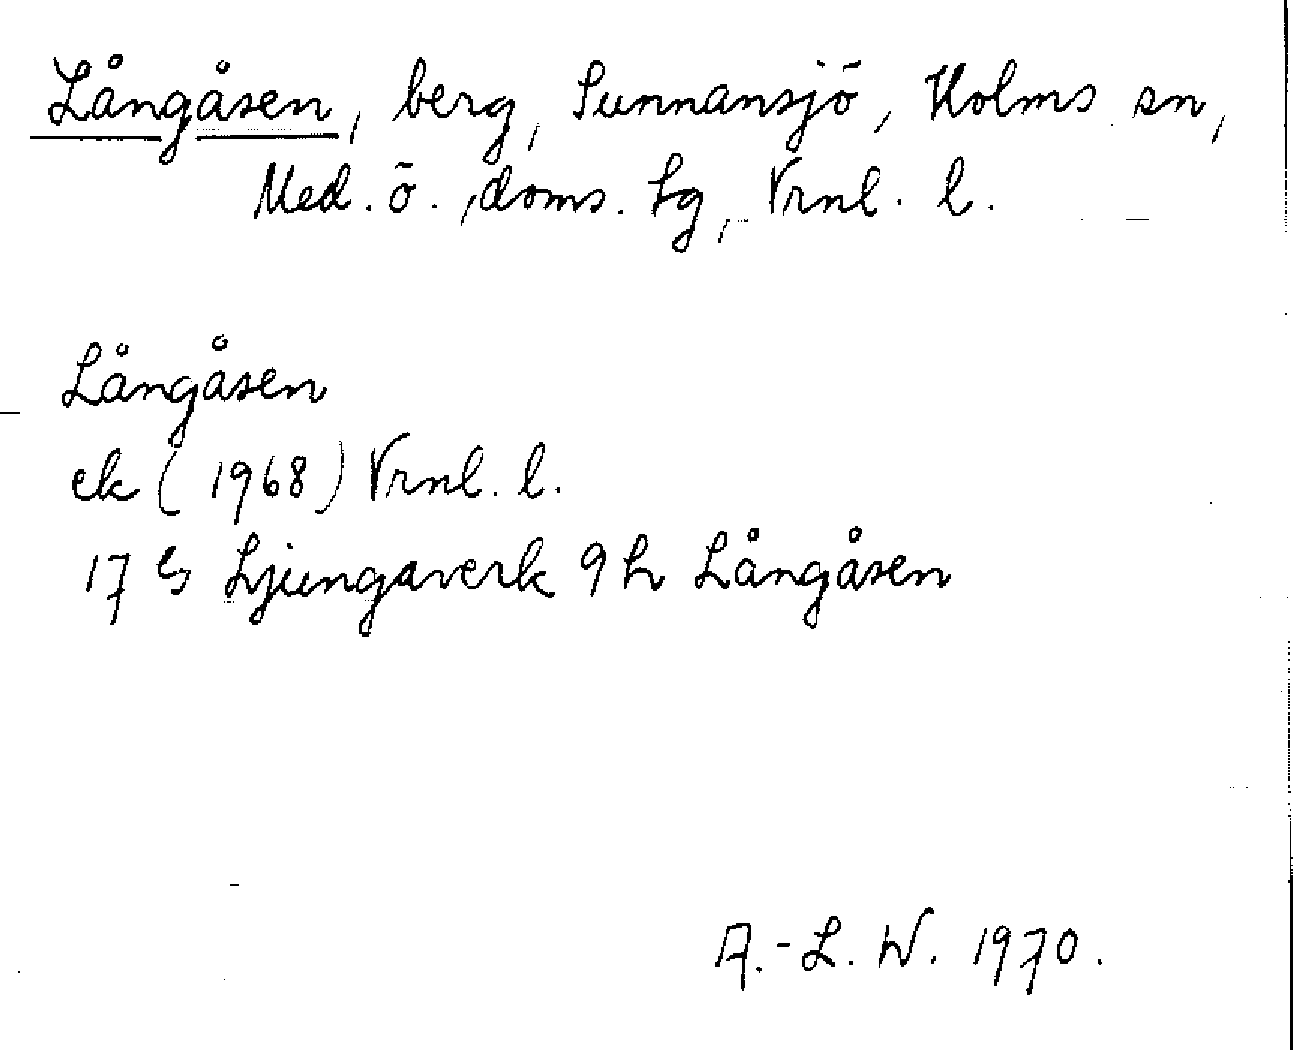 Långåsen, berg, Sunnansjö, Holms sn,
Med. ö., doms. hg, Vrnl. l.
Långåsen
ek (1968) Vrnl. l.
17 G Ljungaverk 9 h Långåsen
A.-L. W. 1970.